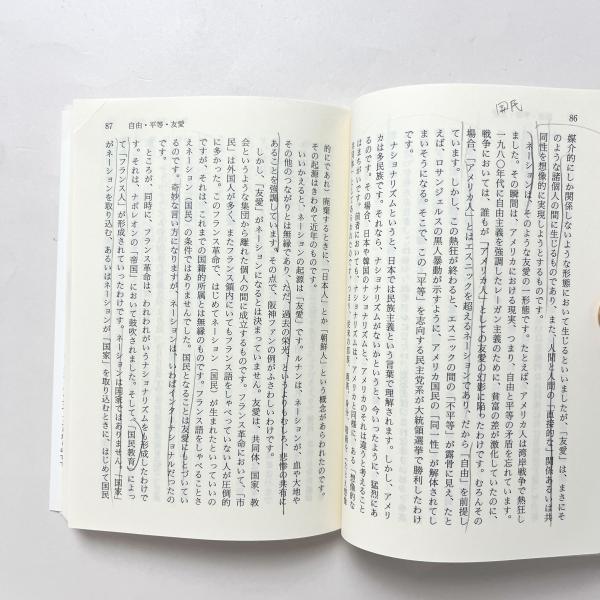 国民
86
媒介的にしか関係しないような形態において生じるといいましたが、「友愛」は、まさにそ
のような諸個人の間に生じるものであり、また、人間と人間の「直接的な」関係あるいは共
同性を想像的に実現しようとするものです。
「ネーション」は、そのような友愛の一形態です。たとえば、アメリカ人は湾岸戦争で熱狂し
ました。その瞬間は、アメリカにおける現実、つまり、自由と平等の矛盾を忘れています。
一九八〇年代に自由主義を強調したレーガン主義のために、貧富の差が激化していたのに、
戦争においては、誰もが「アメリカ人」としての友愛の幻影に陥ったわけです。むろんその
場合、「アメリカ人」とはエスニックを超えるネーションであり、だから「自由」を前提し
ています。しかし、この熱狂が終わると、エスニックの間の「不平等」が露骨に見え、たと
えば、ロサンジェルスの黒人暴動が示すように、アメリカ国民の「同一性」が解体されてし
まいそうになる。そこで、この「平等」を志向する民主党系が大統領選挙で勝利したわけ
ナショナリズムというと、日本では民族主義という言葉で理解されます。しかし、アメリ
カは多民族です。それなら、ナショナリズムがないかというと、今いったように、猛烈にあ
る。その場合、日本や韓国のナショナリズムと、アメリカのそれは違うと考えること
はまちがいです。前者においても、
87 自由・平等・友愛
的にであれ）廃棄するときに、「日本人」とか「朝鮮人」という概念があらわれたのです。
その起源はきわめて近年のものです。
いいかえると、ネーションの起源は「友愛」です。ルナンは、ネーションが、血や大地や
その他のつながりとは無縁であり、ただ、過去の栄光、というよりもむしろ、悲惨の共有に
あることを強調しています。その点で、阪神ファンの例がふさわしいわけです。
しかし、「友愛」がネーションになるとは決まっていません。友愛は、共同体、国家、教
会というような集団から離れた個人の間に成立するものです。フランス革命において、「市
民」は外国人が多く、またフランス領内にいてもフランス語をしゃべっていない人が圧倒的
に多かった。このフランス革命で、はじめてネーション（国民）が生まれたといっていいの
ですが、それは、これまでの国籍的所属とは無縁のものです。フランス語をしゃべることさ
えネーション（国民）の条件ではありませんでした。国民となることは友愛にもとづいてい
るのです。奇妙な言い方になりますが、ネーションは、いわばインターナショナルだったの
ところが、同時に、フランス革命は、われわれがいうナショナリズムをも形成したわけで
す。それは、ナポレオンの「帝国」において鼓吹されました。そして、〈国民教育〉によっ
て「フランス人」が形成されていったわけです。ネーションは国家ではありません。「国家」
がネーションを取り込む、あるいはネーションが「国家」を取り込むときに、はじめて国民